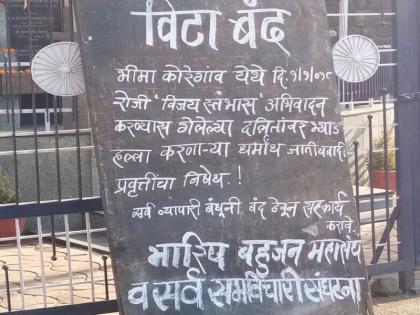 विटा बंद
भीमा कोरेगाव येथे दि.१/१/१८
रोजी 'विजय स्तंभास' अभिवादन
करण्यास गेलेल्या दलितांवर भ्याड
हल्ला करणाऱ्या धर्मांध जातीयवादी
प्रवृत्तींचा निषेध.!
सर्व व्यापारी बंधूनी बंद ठेवून सहकार्य
करावे.
भारिप बहुजन महासंघ
व सर्व समविचारी संघटना